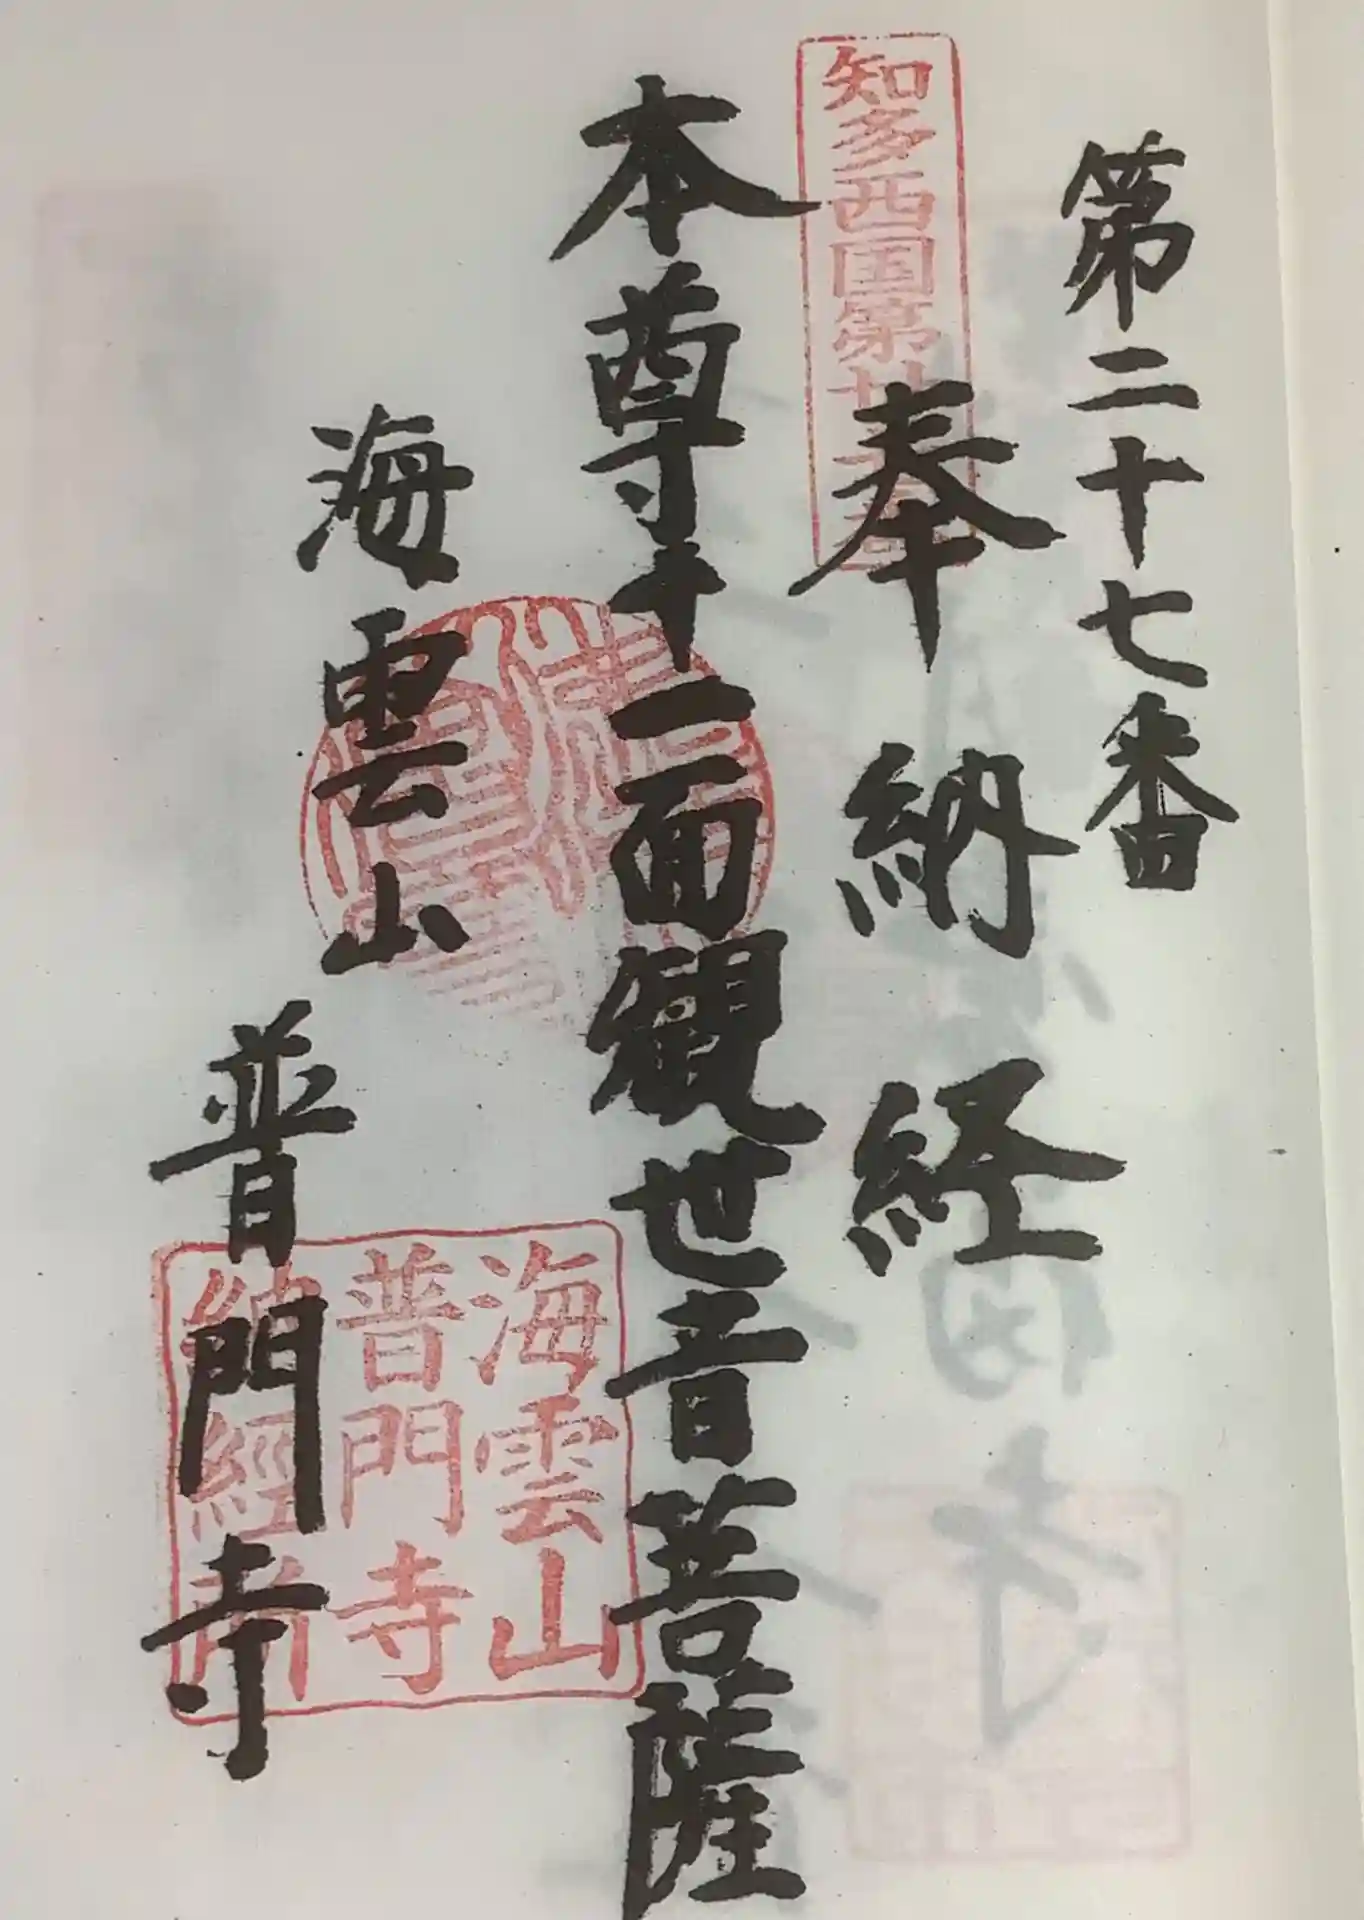 第二十七番
奉納経
知多西国第廿
本尊十一面観世音菩薩
海雲山
普門寺
海雲山
普門寺
納經所